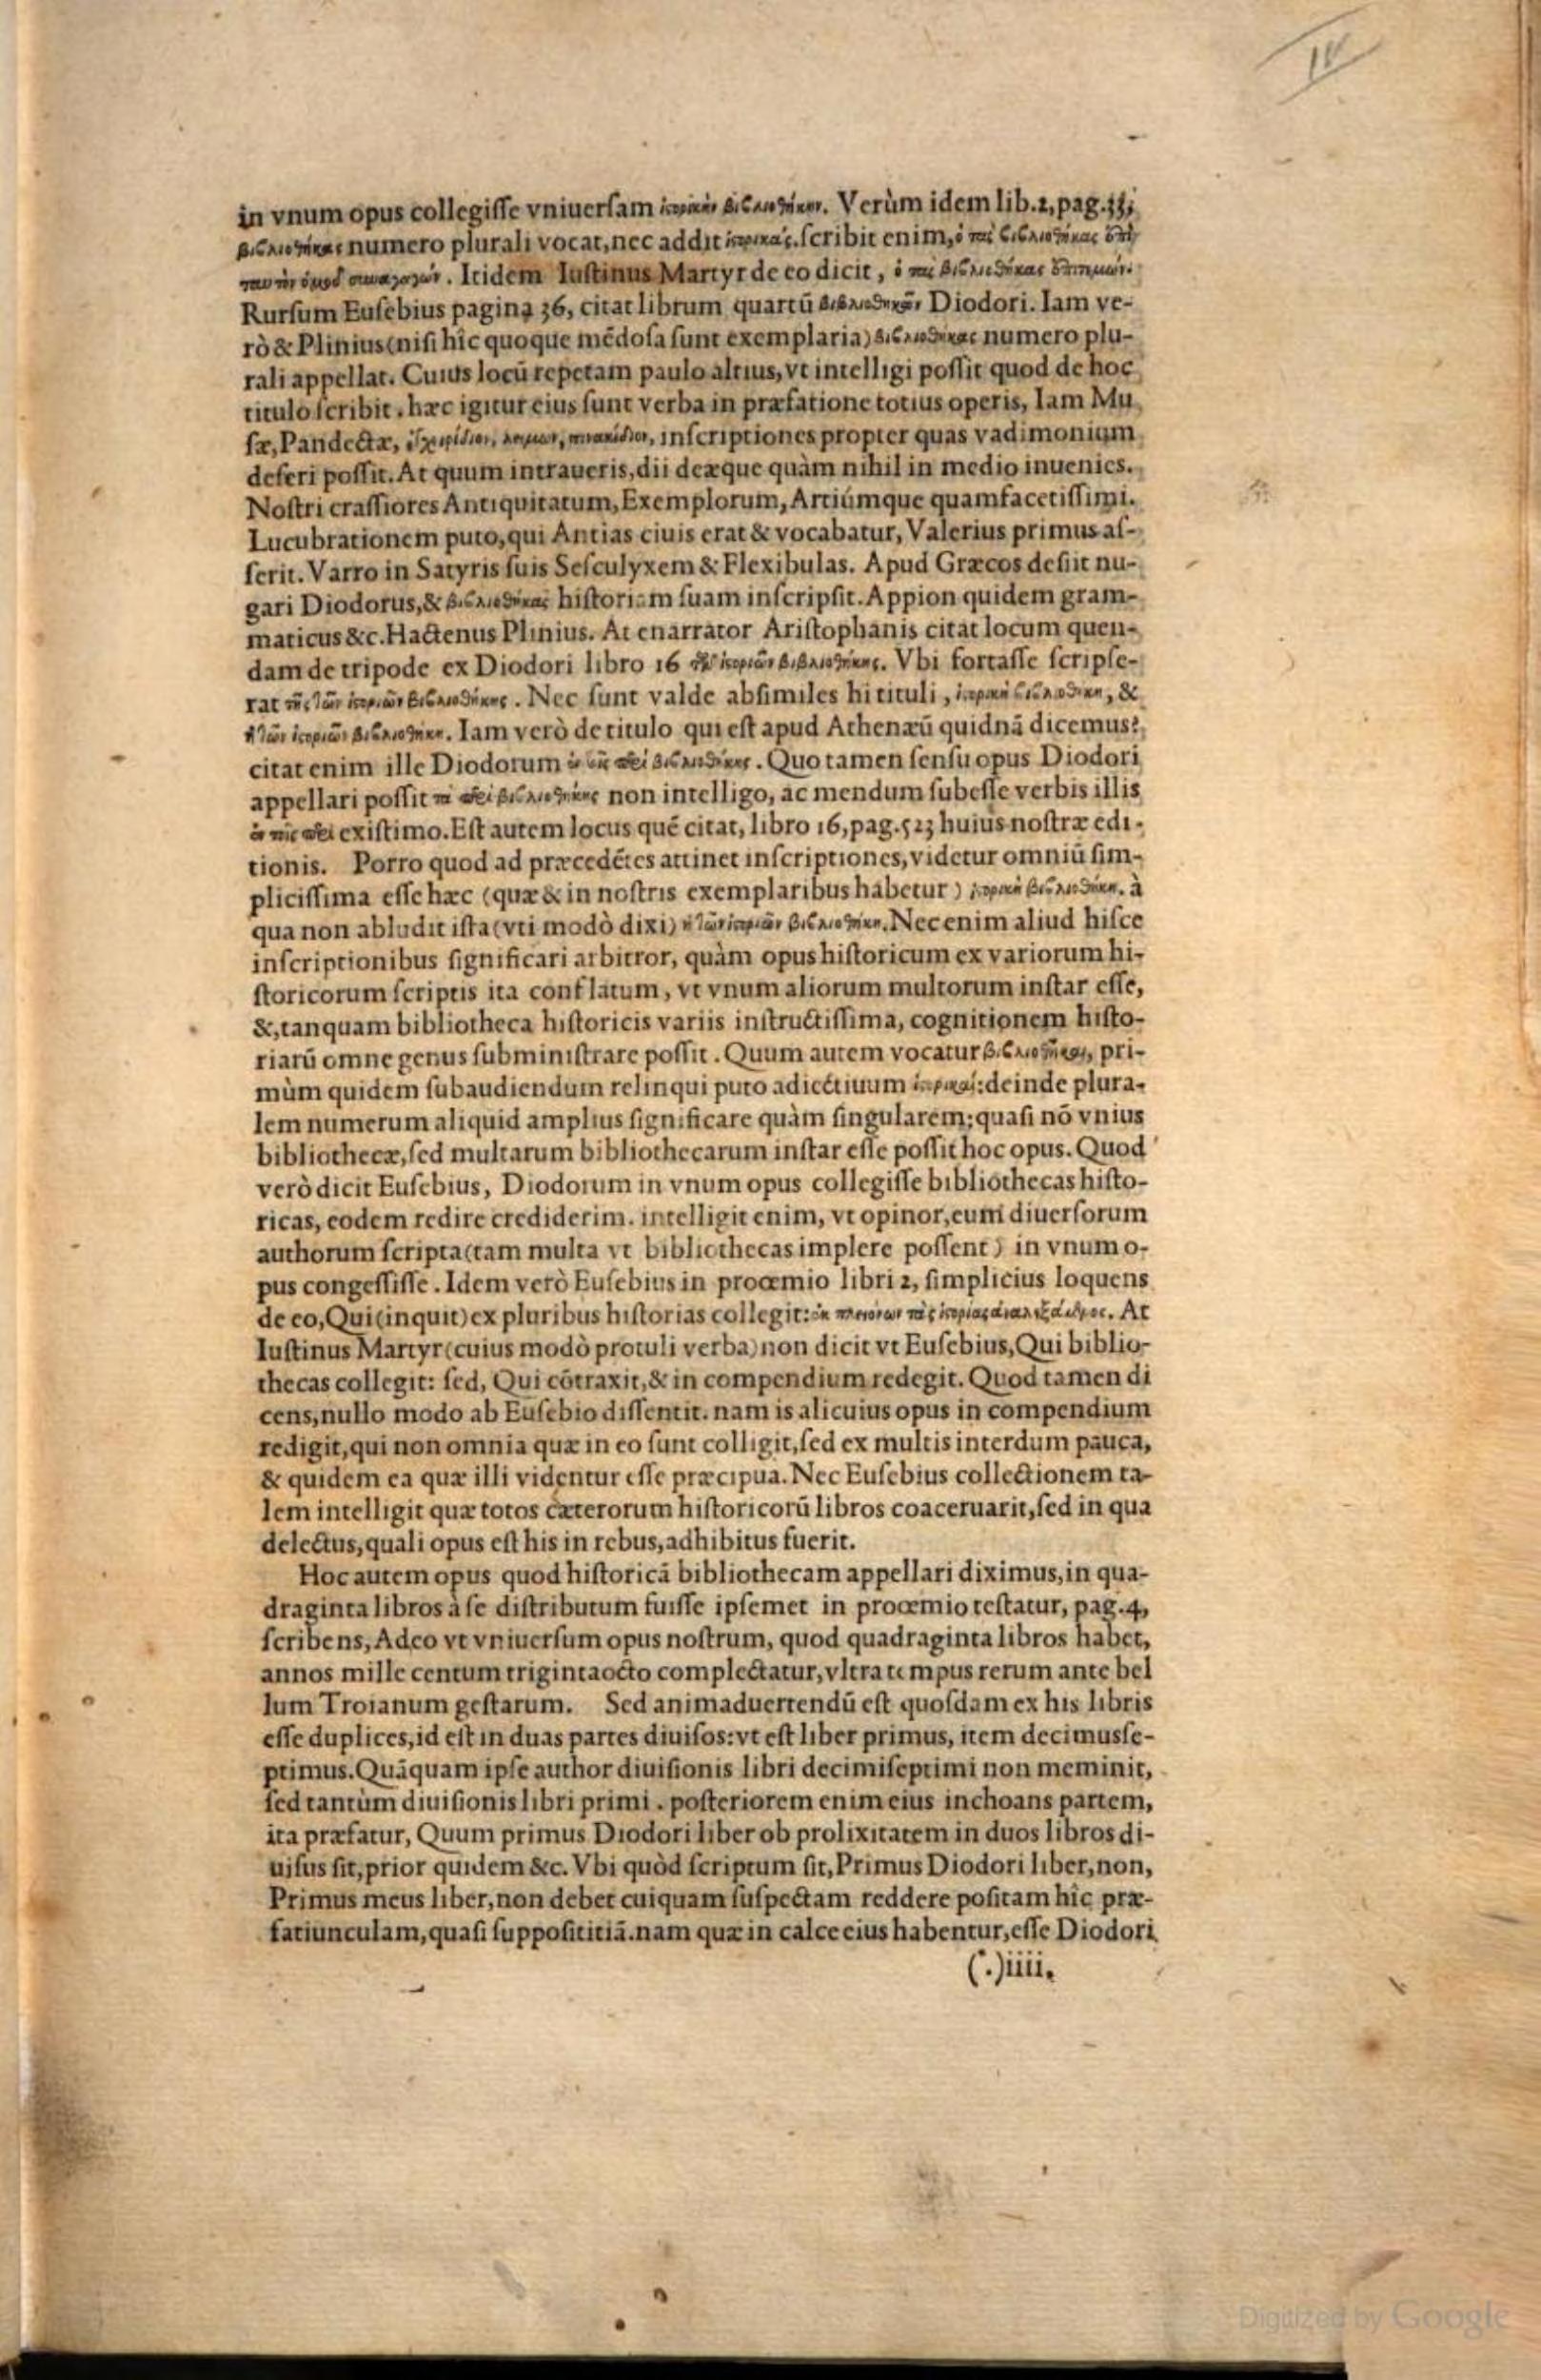 in vnum opus collegiſſe vniuerſam ἱστορικὴν βιβλιοθήκην. Verùm idem lib.2, pag.
βιβλιοθήκας numero plurali vocat, nec addit ἱστορικάς. ſcribit enim, ὁ τὰς βιβλιοθήκας
Itidem Iuſtinus Martyr de eo dicit, ὁ τὰς βιβλιοθήκας
Rurſum Euſebius pagina 36, citat librum quartū βιβλιοθηκῶν Diodori. Iam ve-
rò & Plinius (niſi hîc quoque mēdoſa ſunt exemplaria) βιβλιοθήκας numero plu-
rali appellat. Cuius locū repetam paulo altius, vt intelligi poſſit quod de hoc
titulo ſcribit. hæc igitur eius ſunt verba in præfatione totius operis, Iam Mu
ſæ, Pandectæ, ἐγχειρίδιον, λειμὼν, πινακίδιον, inſcriptiones propter quas vadimonium
deſeri poſſit. At quum intraueris, dii deæque quàm nihil in medio inuenies.
Noſtri craſſiores Antiquitatum, Exemplorum, Artiúmque quamfacetiſſimi.
Lucubrationem puto, qui Antias ciuis erat & vocabatur, Valerius primus aſ-
ſerit. Varro in Satyris ſuis Seſculyxem & Flexibulas. Apud Græcos deſiit nu-
gari Diodorus, & βιβλιοθήκας hiſtoriam ſuam inſcripſit. Appion quidem gram-
maticus &c. Hactenus Plinius. At enarrator Ariſtophanis citat locum quen-
dam de tripode ex Diodori libro 16 τῶν ἱστοριῶν βιβλιοθήκης. Vbi fortaſſe ſcripſe-
rat τῆς τῶν ἱστοριῶν βιβλιοθήκης. Nec ſunt valde abſimiles hi tituli, ἱστορικὴ βιβλιοθήκη, &
ἡ τῶν ἱστοριῶν βιβλιοθήκη. Iam verò de titulo qui eſt apud Athenæū quidnā dicemus?
citat enim ille Diodorum ἐν τοῖς περὶ βιβλιοθήκης. Quo tamen ſenſu opus Diodori
appellari poſſit τὰ περὶ βιβλιοθήκης non intelligo, ac mendum ſubeſſe verbis illis
ἐν τοῖς περὶ exiſtimo. Eſt autem locus quē citat, libro 16, pag. 523 huius noſtræ edi-
tionis. Porro quod ad præcedētes attinet inſcriptiones, videtur omniū ſim-
pliciſſima eſſe hæc (quæ & in noſtris exemplaribus habetur) ἱστορικὴ βιβλιοθήκη. à
qua non abludit iſta (vti modò dixi) ἡ τῶν ἱστοριῶν βιβλιοθήκη. Nec enim aliud hiſce
inſcriptionibus ſignificari arbitror, quàm opus hiſtoricum ex variorum hi-
ſtoricorum ſcriptis ita conflatum, vt vnum aliorum multorum inſtar eſſe,
&, tanquam bibliotheca hiſtoricis variis inſtructiſſima, cognitionem hiſto-
riarū omne genus ſubminiſtrare poſſit. Quum autem vocatur βιβλιοθῆκαι, pri-
mùm quidem ſubaudiendum relinqui puto adiectiuum ἱστορικαί: deinde plura-
lem numerum aliquid amplius ſignificare quàm ſingularem; quaſi nō vnius
bibliothecæ, ſed multarum bibliothecarum inſtar eſſe poſſit hoc opus. Quod
verò dicit Euſebius, Diodorum in vnum opus collegiſſe bibliothecas hiſto-
ricas, eodem redire crediderim. intelligit enim, vt opinor, eum diuerſorum
authorum ſcripta (tam multa vt bibliothecas implere poſſent) in vnum o-
pus congeſſiſſe. Idem verò Euſebius in proœmio libri 2, ſimplicius loquens
de eo, Qui (inquit) ex pluribus hiſtorias collegit: ἐκ πλειόνων τὰς ἱστορίας ἀναλεξάμενος. At
Iuſtinus Martyr (cuius modò protuli verba) non dicit vt Euſebius, Qui biblio-
thecas collegit: ſed, Qui cōtraxit, & in compendium redegit. Quod tamen di
cens, nullo modo ab Euſebio diſſentit. nam is alicuius opus in compendium
redigit, qui non omnia quæ in eo ſunt colligit, ſed ex multis interdum pauca,
& quidem ea quæ illi videntur eſſe præcipua. Nec Euſebius collectionem ta-
lem intelligit quæ totos cæterorum hiſtoricorū libros coaceruarit, ſed in qua
delectus, quali opus eſt his in rebus, adhibitus fuerit.
Hoc autem opus quod hiſtoricā bibliothecam appellari diximus, in qua-
draginta libros à ſe diſtributum fuiſſe ipſemet in proœmio teſtatur, pag. 4,
ſcribens, Adeo vt vniuerſum opus noſtrum, quod quadraginta libros habet,
annos mille centum trigintaocto complectatur, vltra tempus rerum ante bel
lum Troianum geſtarum. Sed animaduertendū eſt quoſdam ex his libris
eſſe duplices, id eſt in duas partes diuiſos: vt eſt liber primus, item decimusſe-
ptimus. Quāquam ipſe author diuiſionis libri decimiſeptimi non meminit,
ſed tantùm diuiſionis libri primi. poſteriorem enim eius inchoans partem,
ita præfatur, Quum primus Diodori liber ob prolixitatem in duos libros di-
uiſus ſit, prior quidem &c. Vbi quòd ſcriptum ſit, Primus Diodori liber, non,
Primus meus liber, non debet cuiquam ſuſpectam reddere poſitam hîc præ-
fatiunculam, quaſi ſuppoſititiā. nam quæ in calce eius habentur, eſſe Diodori
(.)iiii.
Digitized by Google